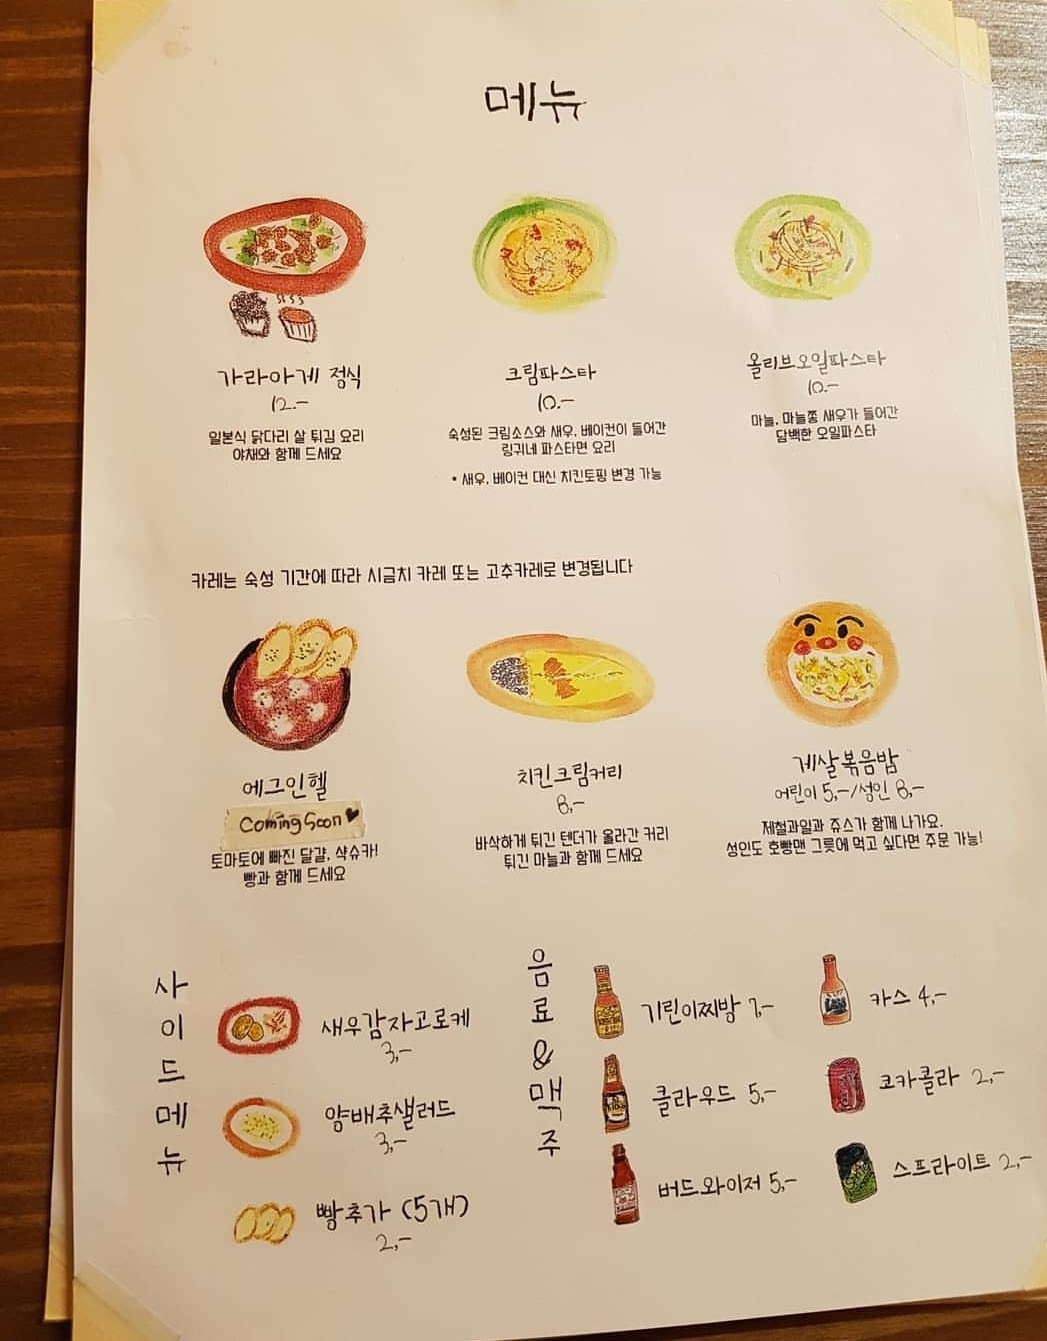 메뉴
가라아게 정식
12.-
일본식 닭다리 살 튀김 요리
야채와 함께 드세요
크림파스타
10.-
숙성된 크림소스와 새우, 베이컨이 들어간
링귀네 파스타면 요리
• 새우, 베이컨 대신 치킨토핑 변경 가능
올리브오일파스타
10.-
마늘, 마늘쫑 새우가 들어간
담백한 오일파스타
카레는 숙성 기간에 따라 시금치 카레 또는 고추카레로 변경됩니다
에그인헬
Coming Soon♥
토마토에 빠진 달걀, 샥슈카!
빵과 함께 드세요
치킨크림커리
8,-
바삭하게 튀긴 텐더가 올라간 커리
튀긴 마늘과 함께 드세요
게살볶음밥
어린이 5,-/성인 8,-
제철과일과 쥬스가 함께 나가요.
성인도 호빵맨 그릇에 먹고 싶다면 주문 가능!
사이드메뉴
새우감자고로케
3,-
양배추샐러드
3,-
빵추가 (5개)
2,-
음료&맥주
기린이찌방 7,-
클라우드 5,-
버드와이저 5,-
카스 4,-
코카콜라 2,-
스프라이트 2,-